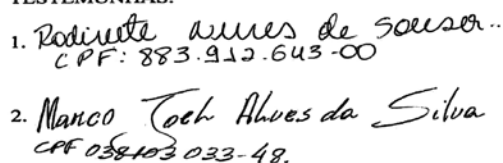 TESTEMUNHAS:
1. Rodinete de
CPF: 883.912.643-00
2. Marco Alves da Silva
CPF 038103033-48.